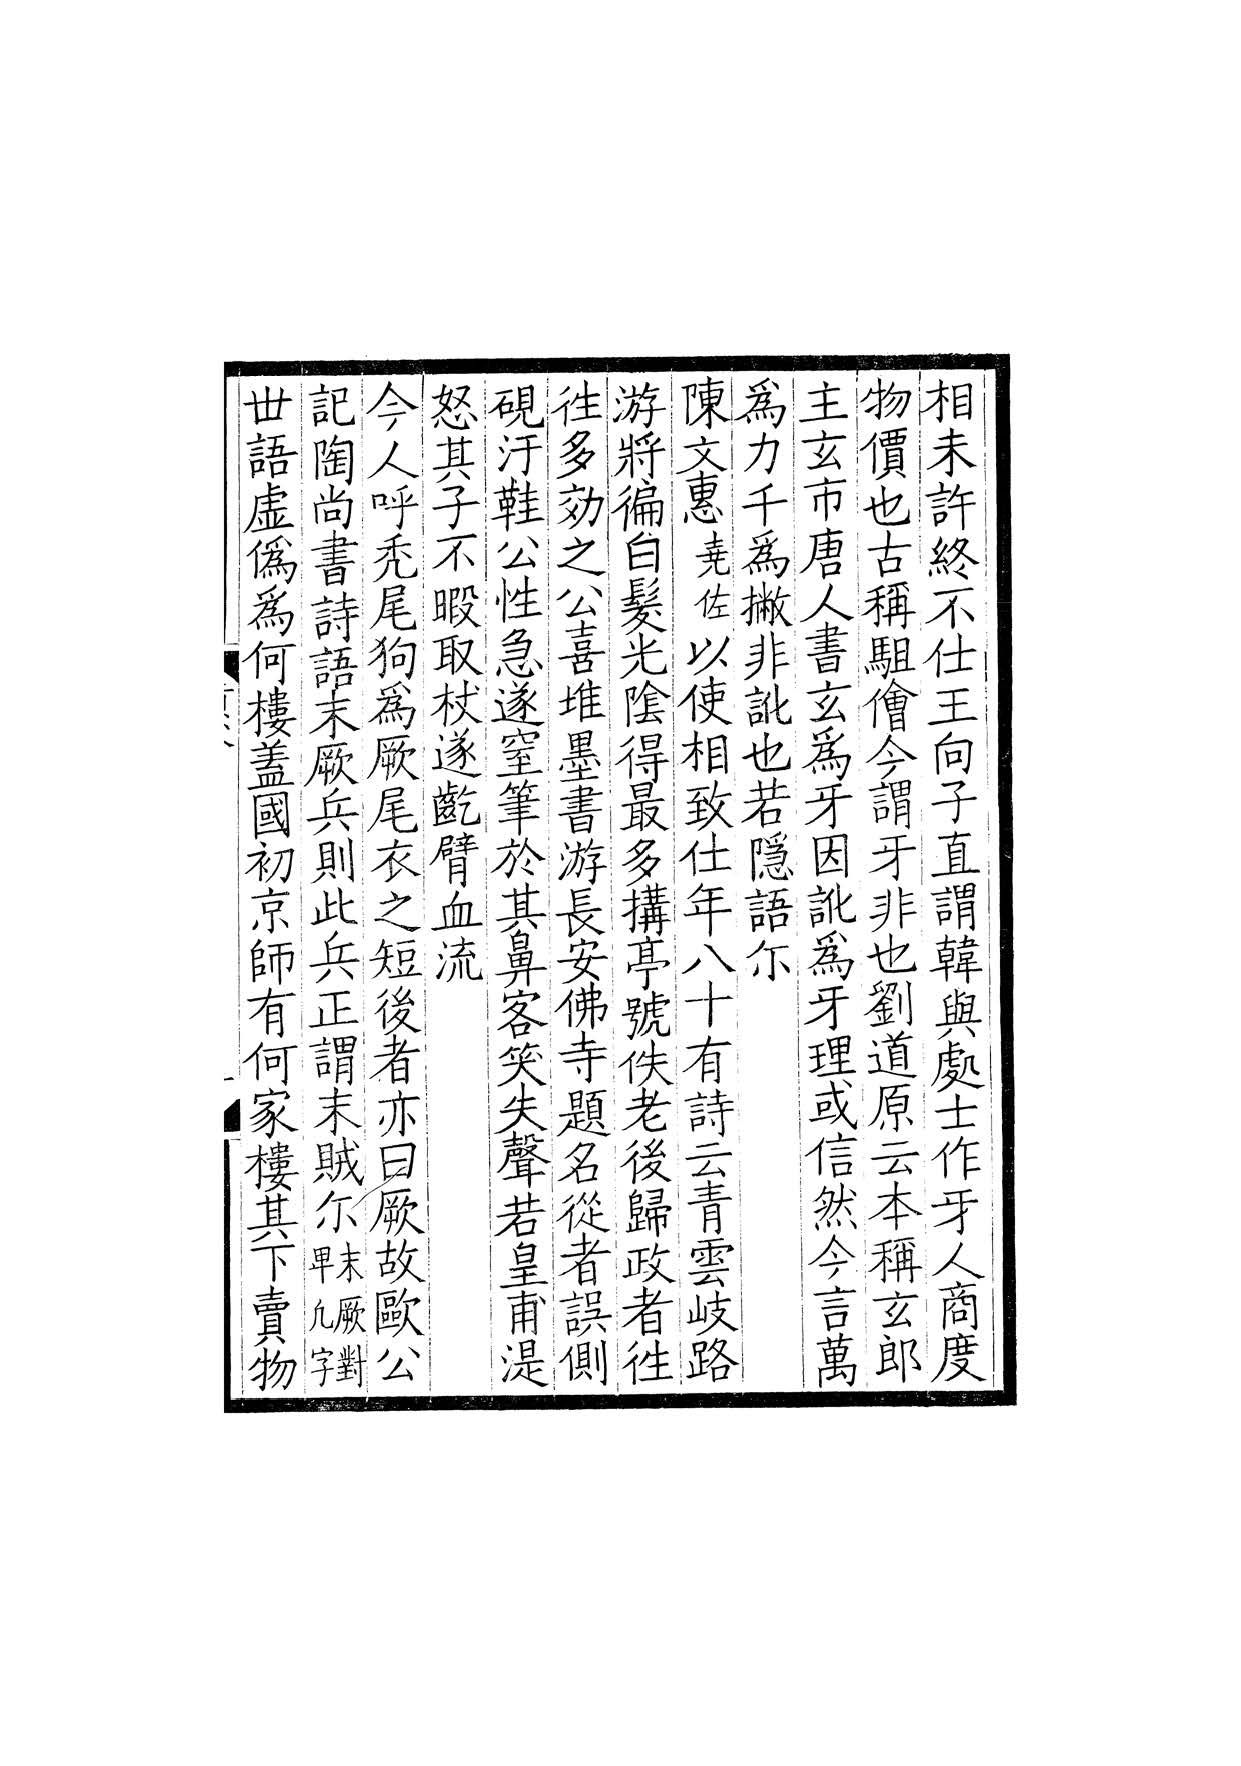 相未許終不仕王向子直謂韓與處士作牙人商度
物價也古稱駔儈今謂牙非也劉道原云本稱玄郎
主玄市唐人書玄爲牙因訛爲牙理或信然今言萬
爲力千爲撇非訛也若隱語尓
陳文惠堯佐以使相致仕年八十有詩云青雲岐路
游將徧白髮光陰得最多搆亭號佚老後歸政者徃
徃多効之公喜堆墨書游長安佛寺題名從者誤側
硯汙鞋公性急遂窒筆於其鼻客笑失聲若皇甫湜
怒其子不暇取杖遂齕臂血流
今人呼秃尾狗爲厥尾衣之短後者亦曰厥故歐公
記陶尚書詩語末厥兵則此兵正謂末賊尓末厥對卑凡字
世語虛僞爲何樓蓋國初京師有何家樓其下賣物